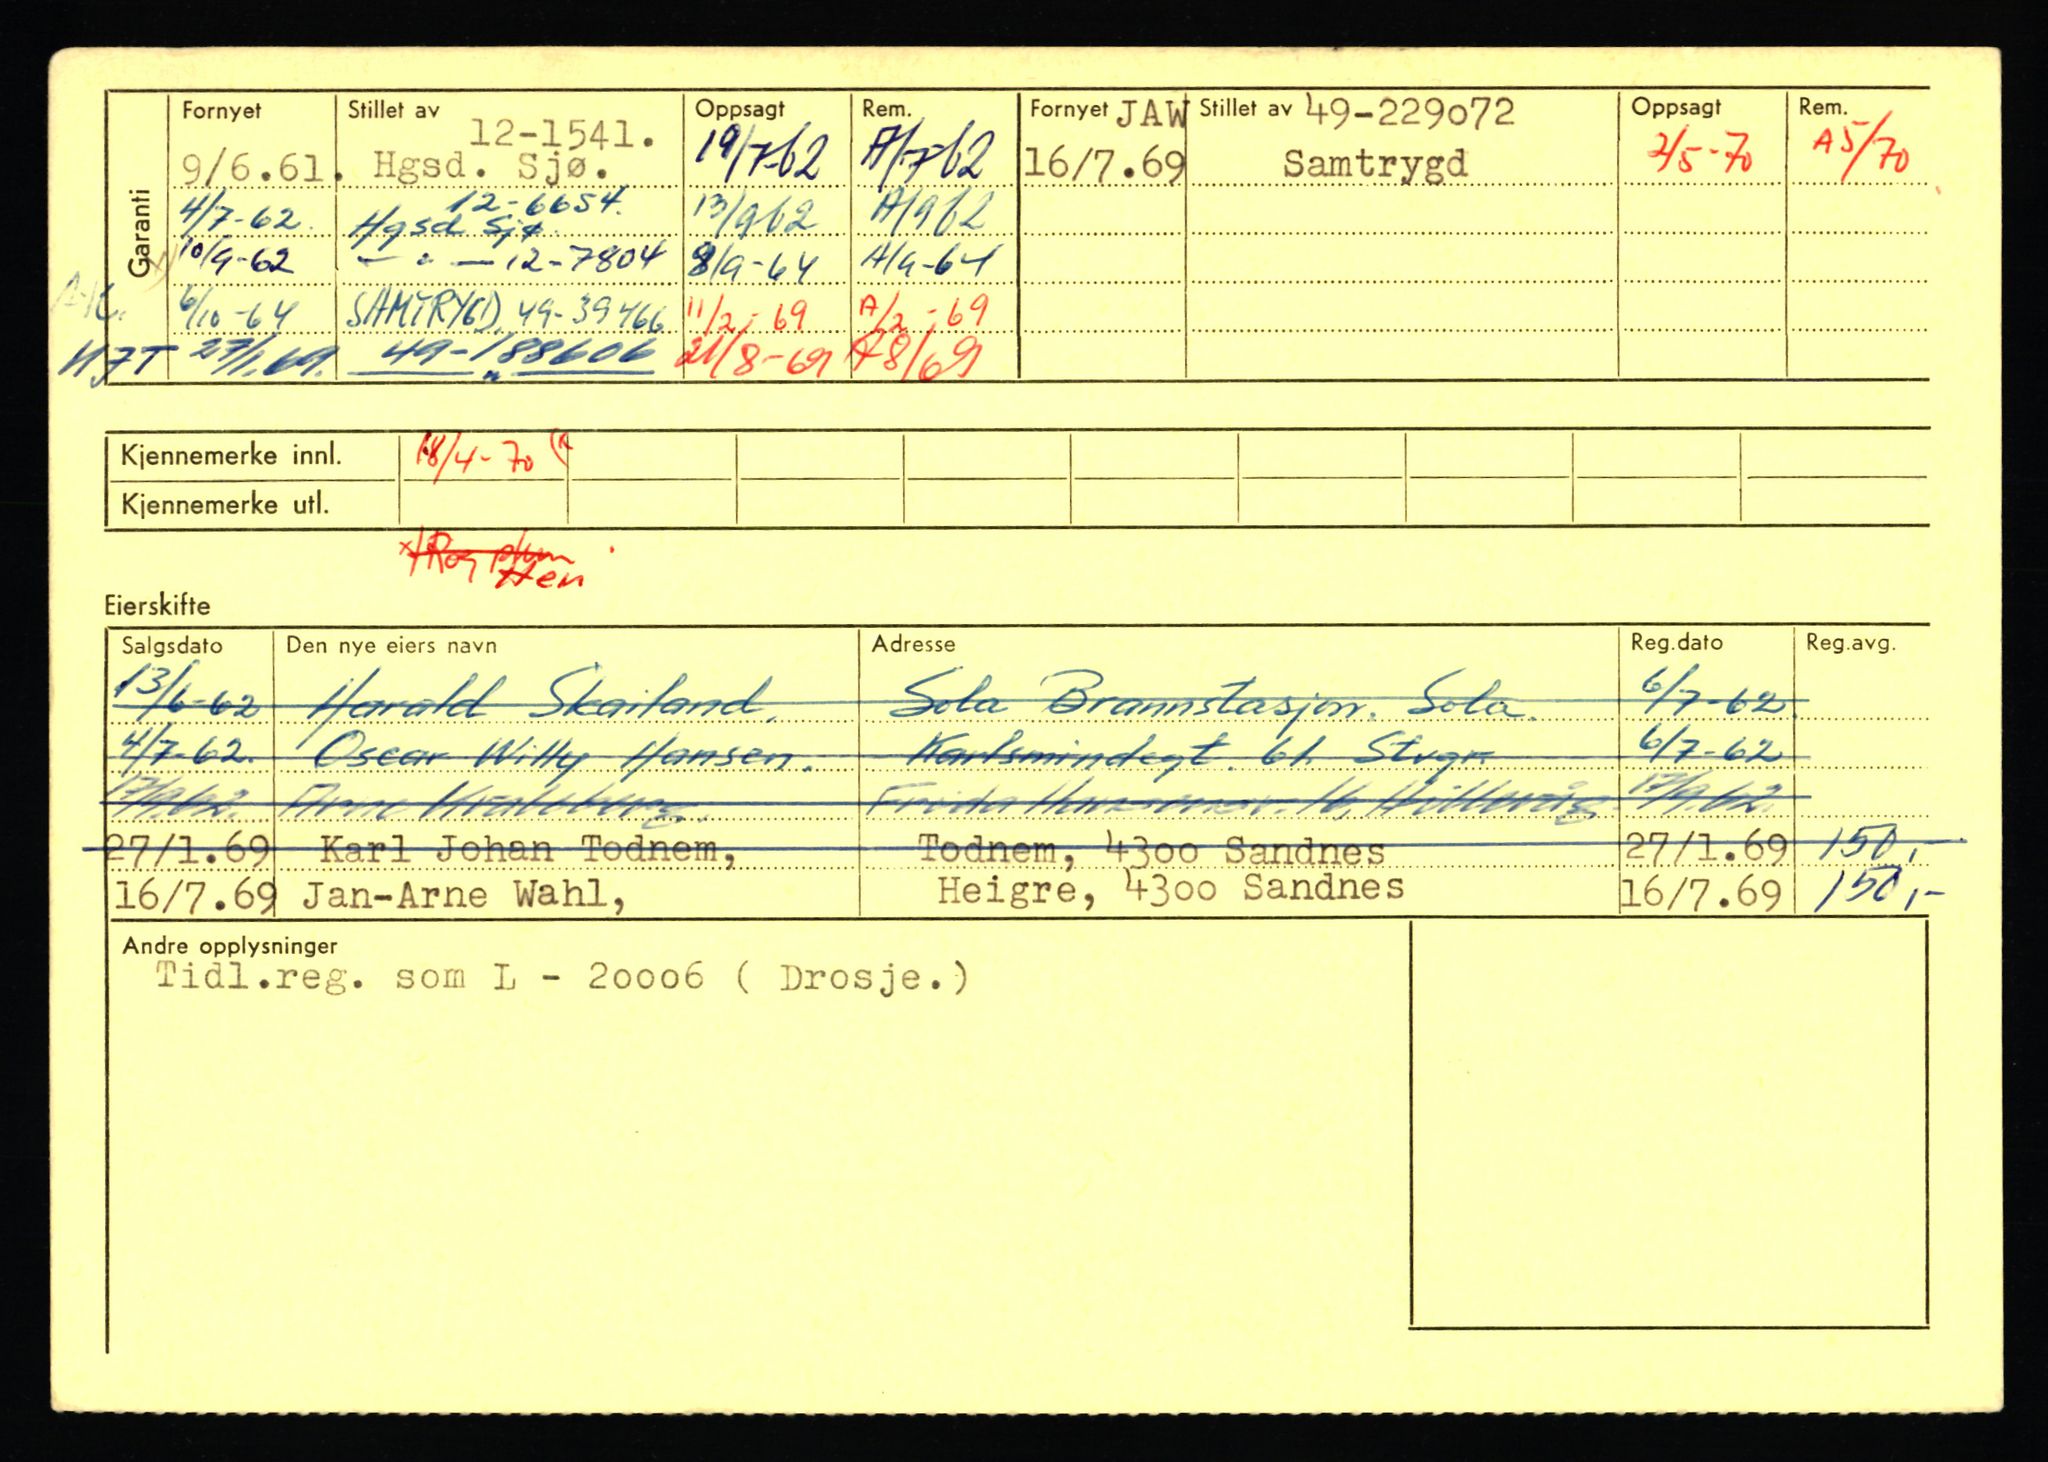 Garanti
Fornyet Stillet av Oppsagt Rem. Fornyet JAW Stillet av 49-229o72 Oppsagt Rem.
12-1541.
9/6.61. Hgsd. Sjø. 19/7-62 A/7-62 16/7.69 Samtrygd 2/5-70 A5/70
12-6654.
4/7-62. Hgsd Sjø. 13/962 A/962
10/9-62 — " — 12-7804 8/9-64 A/9-64
6/10-64 SAMTRYGD. 49-39466 11/2-69 A/2-69
HJT 27/1.69. 49-188606 21/8-69 A8/69
"
Kjennemerke innl. 18/4-70
Kjennemerke utl.
Eierskifte
Salgsdato Den nye eiers navn Adresse Reg.dato Reg.avg.
13/6-62 Harald Skailand. Sola Brannstasjon. Sola. 6/7-62
4/7-62. Oscar Willy Hansen. Karlsmindegt. 61. Stvgr 6/7-62
17/9.62. Arne 16, Hillevåg 17/9.62.
27/1.69 Karl Johan Todnem, Todnem, 43oo Sandnes 27/1.69 150,-
16/7.69 Jan-Arne Wahl, Heigre, 43oo Sandnes 16/7.69 150,-
Andre opplysninger
Tidl.reg. som L - 2ooo6 ( Drosje.)